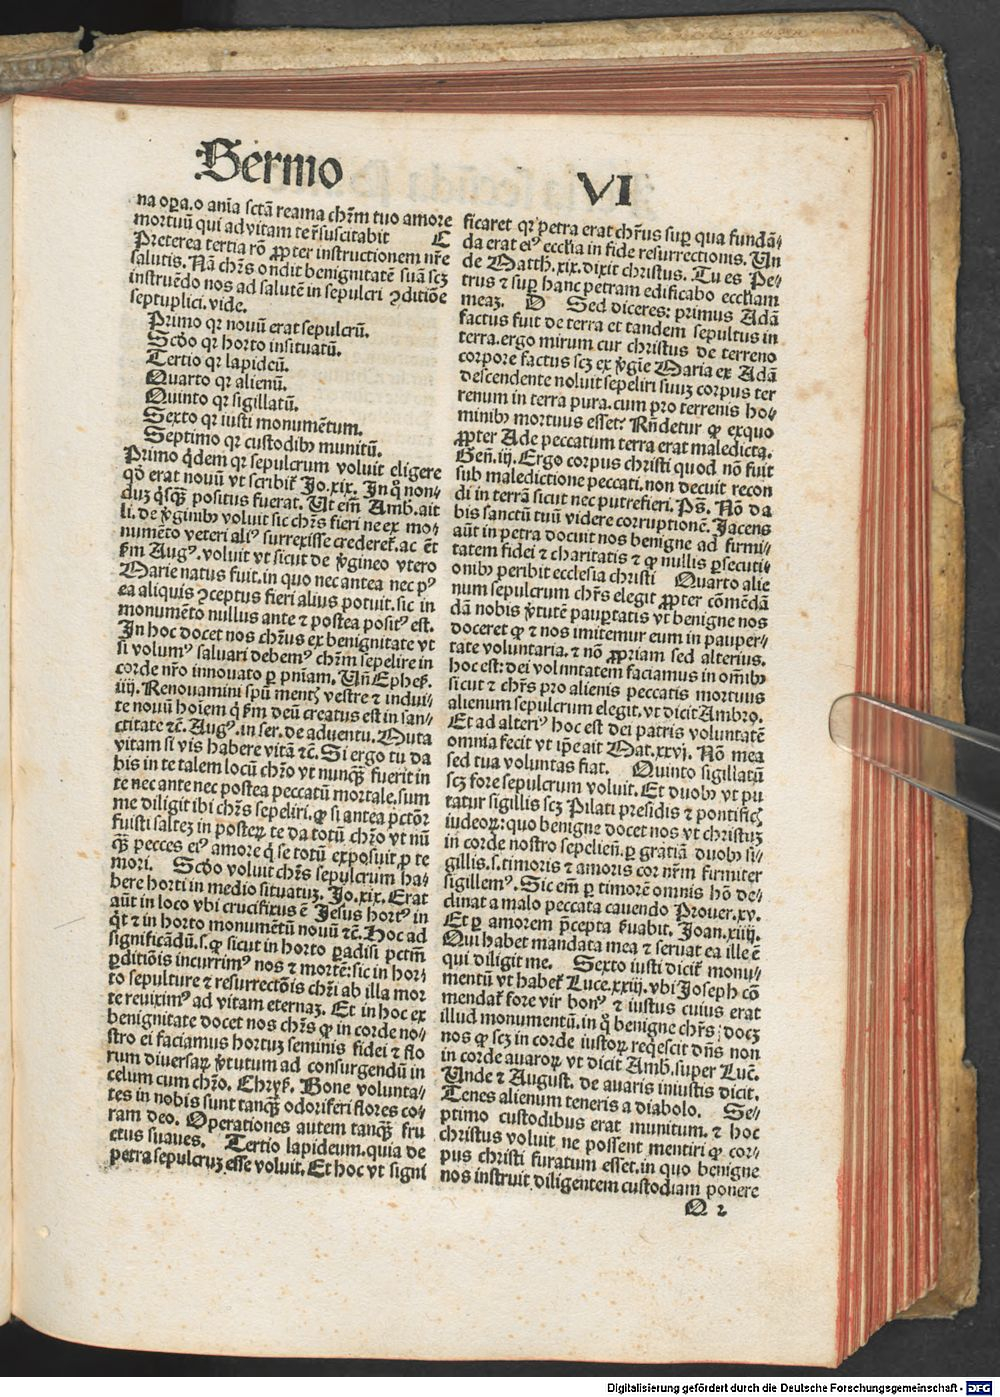 Sermo
VI
na oꝑa. o aĩa sctã reama chr̃m tuo amore
mortuũ qui ad vitam te r̃suscitabit C
Preterea tertia rõ ꝓpter instructionem nr̃e
salutis. Nã chr̃s oñdit benignitatẽ suã scꝫ
instruẽdo nos ad salutẽ in sepulcri ꝯditiõe
septuplici. vide.
Primo qꝛ nouũ erat sepulcrũ.
Scd̃o qꝛ horto insituatũ.
Tertio qꝛ lapideũ.
Quarto qꝛ alienũ.
Quinto qꝛ sigillatũ.
Sexto qꝛ iusti monumẽtum.
Septimo qꝛ custodibꝰ munitũ.
Primo q̃dem qꝛ sepulcrum voluit eligere
qd̃ erat nouũ vt scribit̃ Jo. xix. In q̊ non⸗
duꝫ q̃sq̃ꝫ positus fuerat. Ut em̃ Amb. ait
li. de v̓ginibꝰ voluit sic chr̃s fieri ne ex mo⸗
numẽto veteri aliꝰ surrexisse crederet̃. ac ẽt
s̓m Augꝰ. voluit vt sicut de v̓gineo vtero
Marie natus fuit. in quo nec antea nec pꝰ
ea aliquis ꝯceptus fieri alius potuit. sic in
monumẽto nullus ante ⁊ postea positꝰ est.
In hoc docet nos chr̃us ex benignitate vt
si volumꝰ saluari debemꝰ chr̃m sepelire in
corde nr̃o innouato ꝑ pniam. Un̄ Ephes̃.
iiij. Renouamini spũ mentꝭ vestre ⁊ indui⸗
te nouũ hoĩem q̓ s̓m deũ creatus est in san⸗
ctitate ⁊c̃. Augꝰ. in ser. de aduentu. Muta
vitam si vis habere vitã ⁊c̃. Si ergo tu da
bis in te talem locũ chr̃o vt nunq̃ꝫ fuerit in
te nec ante nec postea peccatũ mortale. sum
me diligit ibi chr̃s sepeliri. ꝙ si antea pctõr
fuisti salteꝫ in posteꝝ te da totũ chr̃o vt nũ
q̃ꝫ pecces eiꝰ amore q̓ se totũ exposuit ꝓ te
mori. Scd̃o voluit chr̃s sepulcrum ha⸗
bere horti in medio situatuꝫ. Jo. xix. Erat
aũt in loco vbi crucifixus ẽ Jesus hortꝰ in
q̃t ⁊ in horto monumẽtũ nouũ ⁊c̃. Hoc ad
significãdũ. s. ꝙ sicut in horto ꝑadisi pctm̃
ꝑditiõis incurrimꝰ nos ⁊ mortẽ: sic in hor⸗
to sepulture ⁊ resurrectõis chr̃i ab illa mor
te reuiximꝰ ad vitam eternaꝫ. Et in hoc ex
benignitate docet nos chr̃s ꝙ in corde no⸗
stro ei faciamus hortuꝫ seminis fidei ⁊ flo
rum diuersaꝝ v̓tutum ad consurgendũ in
celum cum chr̃o. Chrys̃. Bone volunta⸗
tes in nobis sunt tanq̃ꝫ odoriferi flores co⸗
ram deo. Operationes autem tanq̃ꝫ fru
ctus suaues. Tertio lapideum. quia de
petra sepulcruꝫ esse voluit. Et hoc vt signi
ficaret qꝛ petra erat chr̃us suꝑ qua fundã⸗
da erat eiꝰ ecclia in fide resurrectionis. Un
de Matth. xix. dixit christus. Tu es Pe⸗
trus ⁊ suꝑ hanc petram edificabo eccliam
meaꝫ. D Sed diceres: primus Adã
factus fuit de terra et tandem sepultus in
terra. ergo mirum cur christus de terreno
corpore factus scꝫ ex v̓gĩe Maria ex Adã
descendente noluit sepeliri suuꝫ corpus ter
renum in terra pura. cum pro terrenis ho⸗
minibꝰ mortuus esset? Rñdetur ꝙ exquo
ꝓpter Ade peccatum terra erat maledicta.
Geñ. iij. Ergo corpus christi quod nõ fuit
sub maledictione peccati. non decuit recon
di in terrã sicut nec putrefieri. Ps̃. Nõ da
bis sanctũ tuũ videre corruptionẽ. Jacens
aũt in petra docuit nos benigne ad firmi⸗
tatem fidei ⁊ charitatis ⁊ ꝙ nullis ꝑsecuti⸗
onibꝰ peribit ecclesia christi Quarto alie
num sepulcrum chr̃s elegit ꝓpter cõmẽdã
dã nobis v̓tutẽ pauꝑtatis vt benigne nos
doceret ꝙ ⁊ nos imitemur eum in pauper⸗
tate voluntaria. ⁊ nõ ꝓpriam sed alterius.
hoc est: dei volnntatem faciamus in omĩbꝰ
sicut ⁊ chr̃s pro alienis peccatis mortuus
alienum sepulcrum elegit. vt dicit Ambꝛo.
Et ad alteriꝰ hoc est dei patris voluntatẽ
omnia fecit vt ip̃e ait Mat. xxvj. Nõ mea
sed tua voluntas fiat. Quinto sigillatũ
scꝫ fore sepulcrum voluit. Et duobꝰ vt pu
tatur sigillis scꝫ Pilati presidis ⁊ pontificꝭ
iudeoꝝ: quo benigne docet nos vt christuꝫ
in corde nostro sepelien̄. ꝑ gratiã duobꝰ si⸗
gillis. s. timoris ⁊ amoris cor nr̃m firmiter
sigillemꝰ. Sic em̃ ꝑ timorẽ omnis hõ de⸗
clinat a malo peccata cauendo Prouer. xv.
Et ꝑ amorem p̃cepta s̓uabit. Joan. xiiij.
Qui habet mandata mea ⁊ seruat ea ille ẽ
qui diligit me. Sexto iusti dicit̃ monu⸗
mentũ vt habet̃ Luce. xxiij. vbi Joseph cõ
mendat̃ fore vir bonꝰ ⁊ iustus cuius erat
illud monumentũ. in q̊ benigne chr̃s docꝫ
nos ꝙ scꝫ in corde iustoꝝ reqẽscit dñs non
in corde auaroꝝ vt dicit Amb. super Luc̃.
Unde ⁊ August. de auaris iniustis dicit.
Tenes alienum teneris a diabolo. Se⸗
ptimo custodibus erat munitum. ⁊ hoc
christus voluit ne possent mentiri ꝙ cor⸗
pus christi furatum esset. in quo benigne
nos instruit diligentem custodiam ponere
Q 2
Digitalisierung gefördert durch die Deutsche Forschungsgemeinschaft - DFG